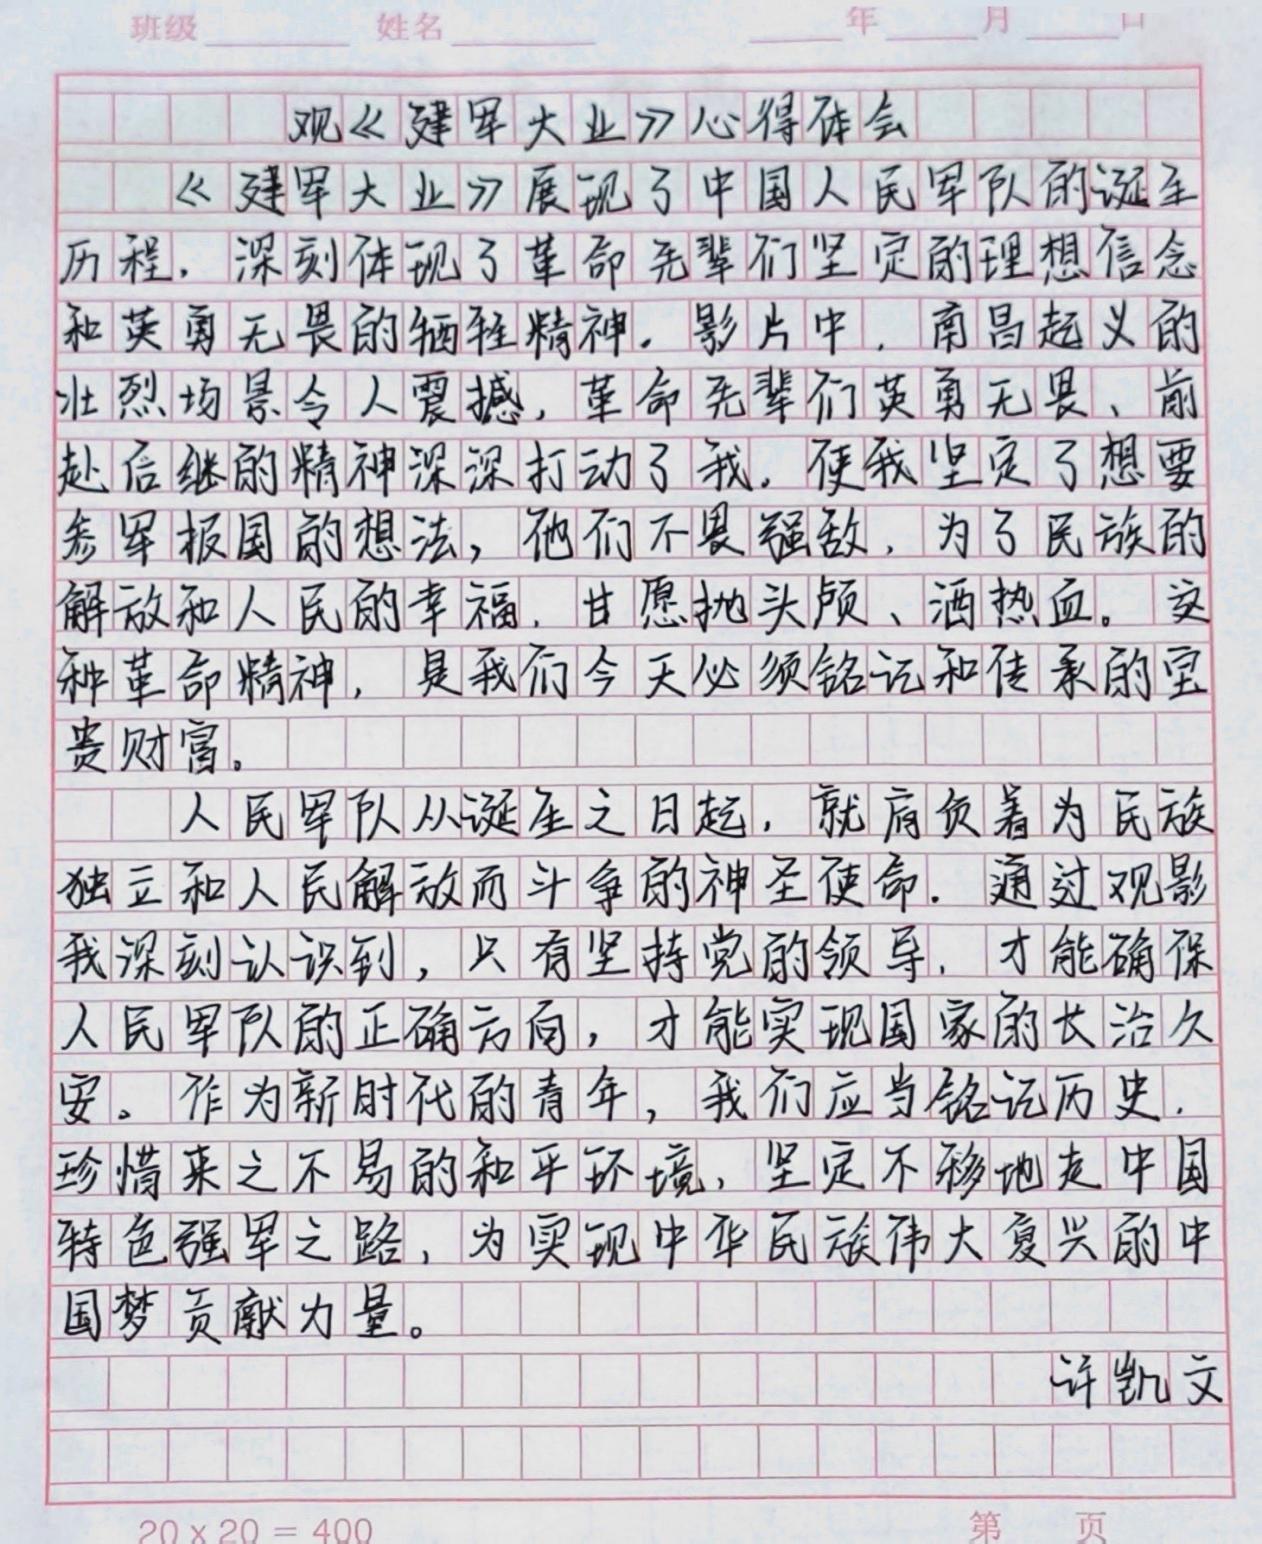 班级 姓名 年 月 日
观《建军大业》心得体会
《建军大业》展现了中国人民军队的诞生
历程，深刻体现了革命先辈们坚定的理想信念
和英勇无畏的牺牲精神。影片中，南昌起义的
壮烈场景令人震撼，革命先辈们英勇无畏、前
赴后继的精神深深打动了我，使我坚定了想要
参军报国的想法，他们不畏强敌，为了民族的
解放和人民的幸福，甘愿抛头颅、洒热血。这
种革命精神，是我们今天必须铭记和传承的宝
贵财富。
人民军队从诞生之日起，就肩负着为民族
独立和人民解放而斗争的神圣使命。通过观影
我深刻认识到，只有坚持党的领导，才能确保
人民军队的正确方向，才能实现国家的长治久
安。作为新时代的青年，我们应当铭记历史，
珍惜来之不易的和平环境，坚定不移地走中国
特色强军之路，为实现中华民族伟大复兴的中
国梦贡献力量。
许凯文
20×20=400 第 页